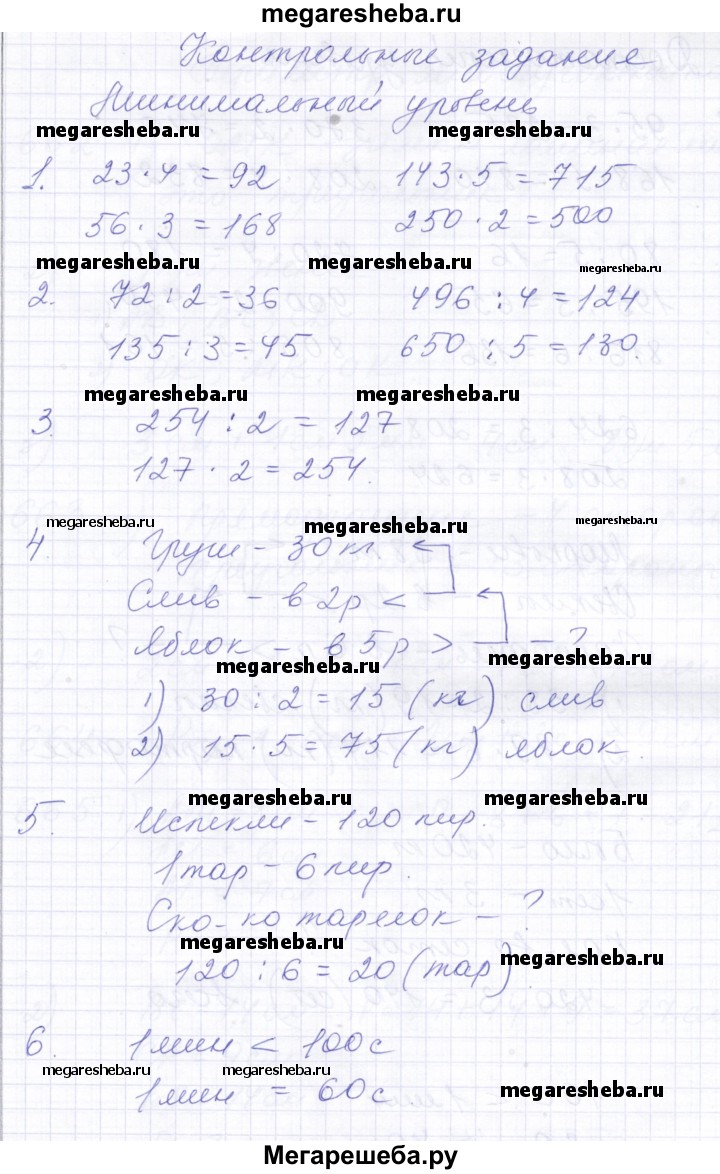 megaresheba.ru
Контрольные задание
Минимальный уровень
megaresheba.ru megaresheba.ru
1. 23 · 4 = 92 143 · 5 = 715
56 · 3 = 168 250 · 2 = 500
megaresheba.ru megaresheba.ru megaresheba.ru
2. 72 : 2 = 36 496 : 4 = 124
135 : 3 = 45 650 : 5 = 130.
megaresheba.ru megaresheba.ru
3. 254 : 2 = 127
127 · 2 = 254.
megaresheba.ru megaresheba.ru megaresheba.ru
4. Груш - 30 кг.
Слив - в 2р <
Яблок - в 5р > - ?
megaresheba.ru megaresheba.ru
1) 30 : 2 = 15 (кг) слив
2) 15 · 5 = 75 (кг) яблок.
megaresheba.ru megaresheba.ru
5. Испекли - 120 пир.
1 тар - 6 пир.
Ско-ко тарелок - ?
megaresheba.ru megaresheba.ru
120 : 6 = 20 (тар)
6. 1 мин < 100 с
megaresheba.ru megaresheba.ru megaresheba.ru
1 мин = 60 с
Мегарешеба.ру